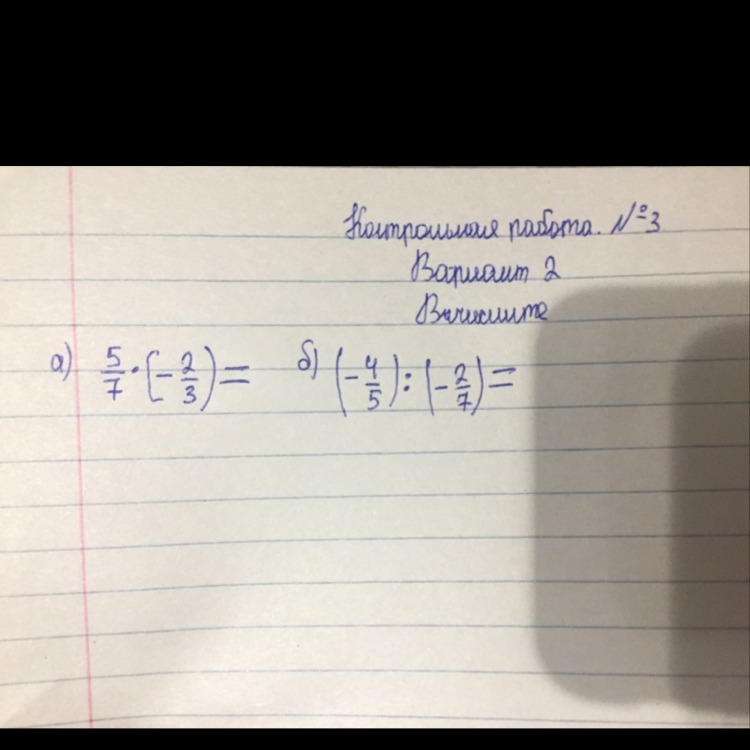 Контрольная работа. №3
Вариант 2
Вычислите
а) 5/7 · (-2/3) = б) (-4/5) : (-2/7) =